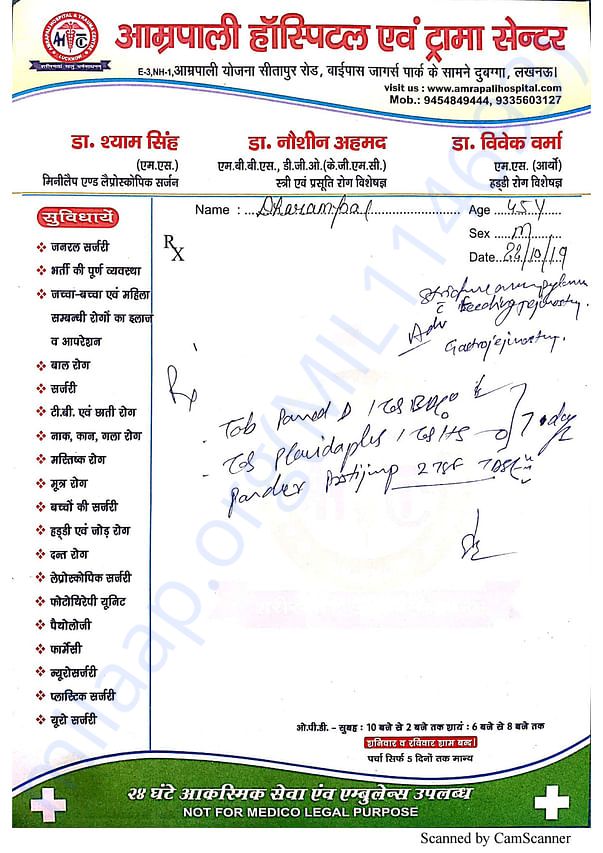 आम्रपाली हॉस्पिटल एवं ट्रामा सेन्टर
E-3,NH-1,आम्रपाली योजना सीतापुर रोड, बाईपास जागर्स पार्क के सामने दुबग्गा, लखनऊ।
visit us : www.amrapalihospital.com
Mob.: 9454849444, 9335603127
डा. श्याम सिंह
(एम.एस.)
मिनीलेप एण्ड लैप्रोस्कोपिक सर्जन
डा. नौशीन अहमद
एम.बी.बी.एस., डी.जी.ओ.(के.जी.एम.सी.)
स्त्री एवं प्रसूति रोग विशेषज्ञ
डा. विवेक वर्मा
एम.एस. (आर्थो)
हड्डी रोग विशेषज्ञ
Name : Dharampal Age 45 Y
Sex m
Date 22/10/19
Rx
Stricture
c Feeding jejunostomy.
Adv
Gastrojejunostomy.
Rx
Tab 1 BD
1 HS 7 day
सुविधायें
जनरल सर्जरी
भर्ती की पूर्ण व्यवस्था
जच्चा-बच्चा एवं महिला
सम्बन्धी रोगों का इलाज
व आपरेशन
बाल रोग
सर्जरी
टी.बी. एवं छाती रोग
नाक, कान, गला रोग
मस्तिष्क रोग
मूत्र रोग
बच्चों की सर्जरी
हड्डी एवं जोड़ रोग
दन्त रोग
लेप्रोस्कोपिक सर्जरी
फोटोथिरेपी यूनिट
पैथोलोजी
फार्मेसी
न्यूरोसर्जरी
प्लास्टिक सर्जरी
यूरो सर्जरी
ओ.पी.डी. - सुबह : 10 बजे से 2 बजे तक शायं : 6 बजे से 8 बजे तक
शनिवार व रविवार शाम बन्द।
पर्चा सिर्फ 5 दिनों तक मान्य
२४ घंटे आकस्मिक सेवा एंव एम्बुलेन्स उपलब्ध
NOT FOR MEDICO LEGAL PURPOSE
Scanned by CamScanner